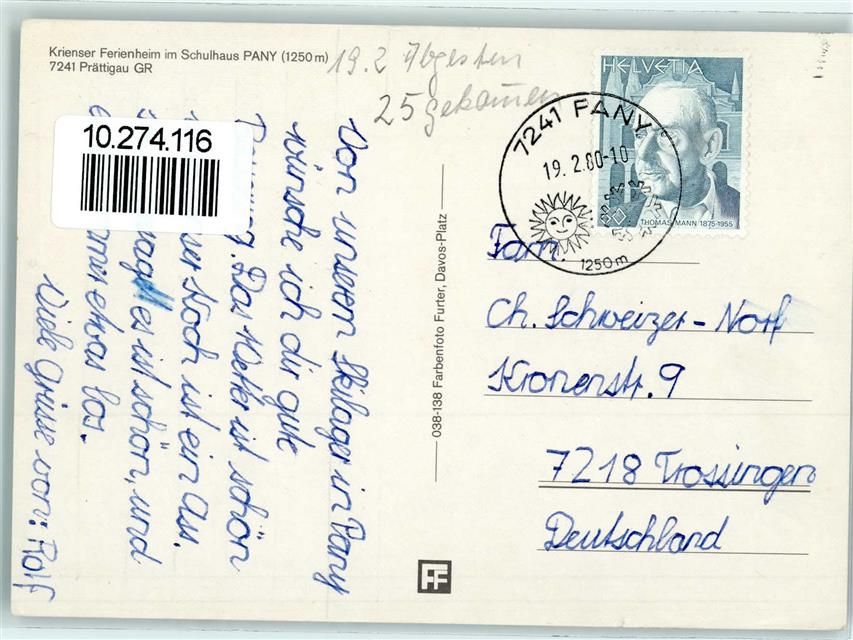 Krienser Ferienheim im Schulhaus PANY (1250 m)
7241 Prättigau GR
19.2 Abgesten
25 gekommen
10.274.116
Von unserem Skilager in Pany
wünsche ich dir gute
Das Wetter ist schön
Koch ist ein Ass.
es ist schön, und
etwas los.
Viele Grüsse von: Rolf
038-138 Farbenfoto Furter, Davos-Platz
HELVETIA
THOMAS MANN 1875-1955
7241 PANY
19. 2.80-10
1250 m
Fam.
Ch. Schweizer-Norf
Kronenstr. 9
7218 Trossingen
Deutschland
FF